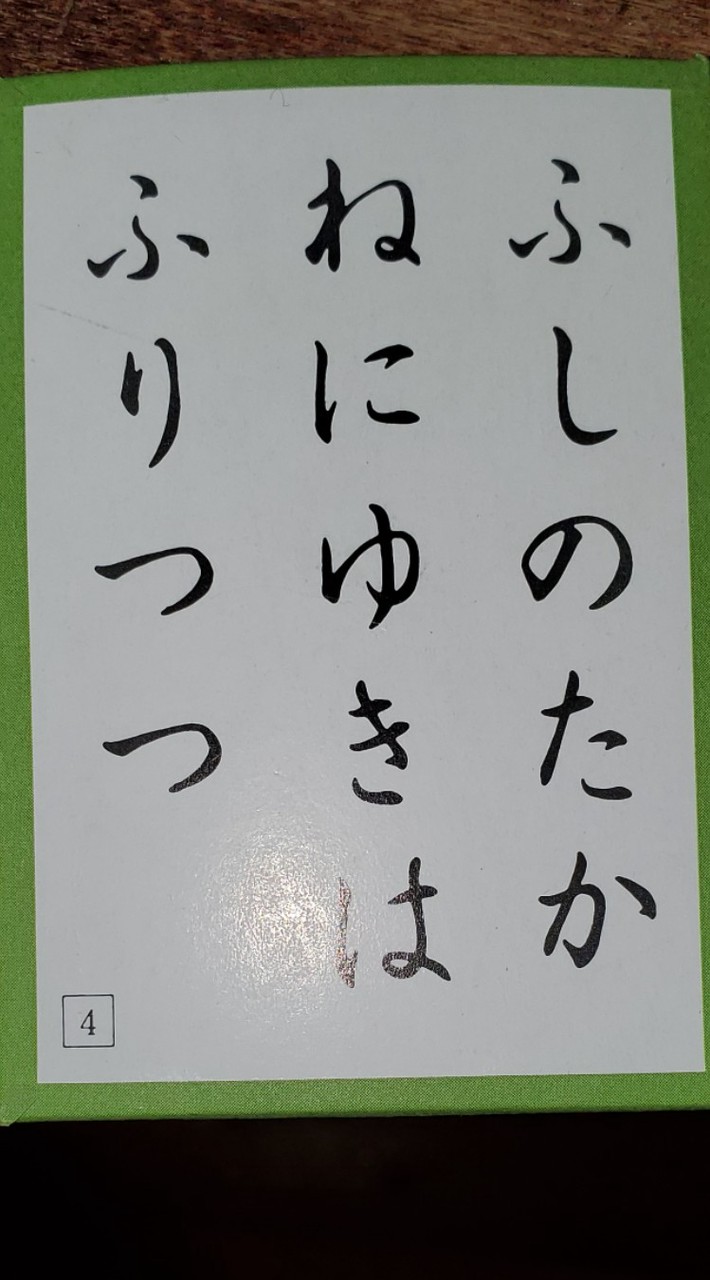 ふしのたか
ねにゆきは
ふりつつ
4